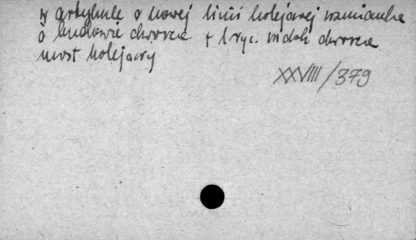 w artykule o nowej linii kolejowej wzmianka
o budowie dworca + 1 ryc. widok dworca
most kolejowy
XXVIII/379